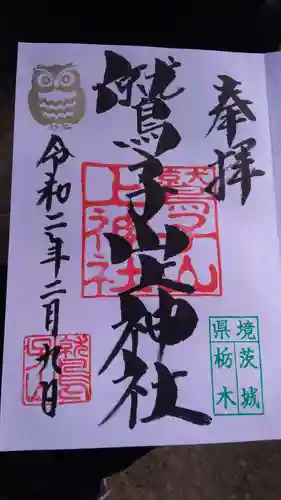 奉拝
鷲子山上神社
令和二年二月九日
鷲子山
上神社
境
茨城
県
栃木